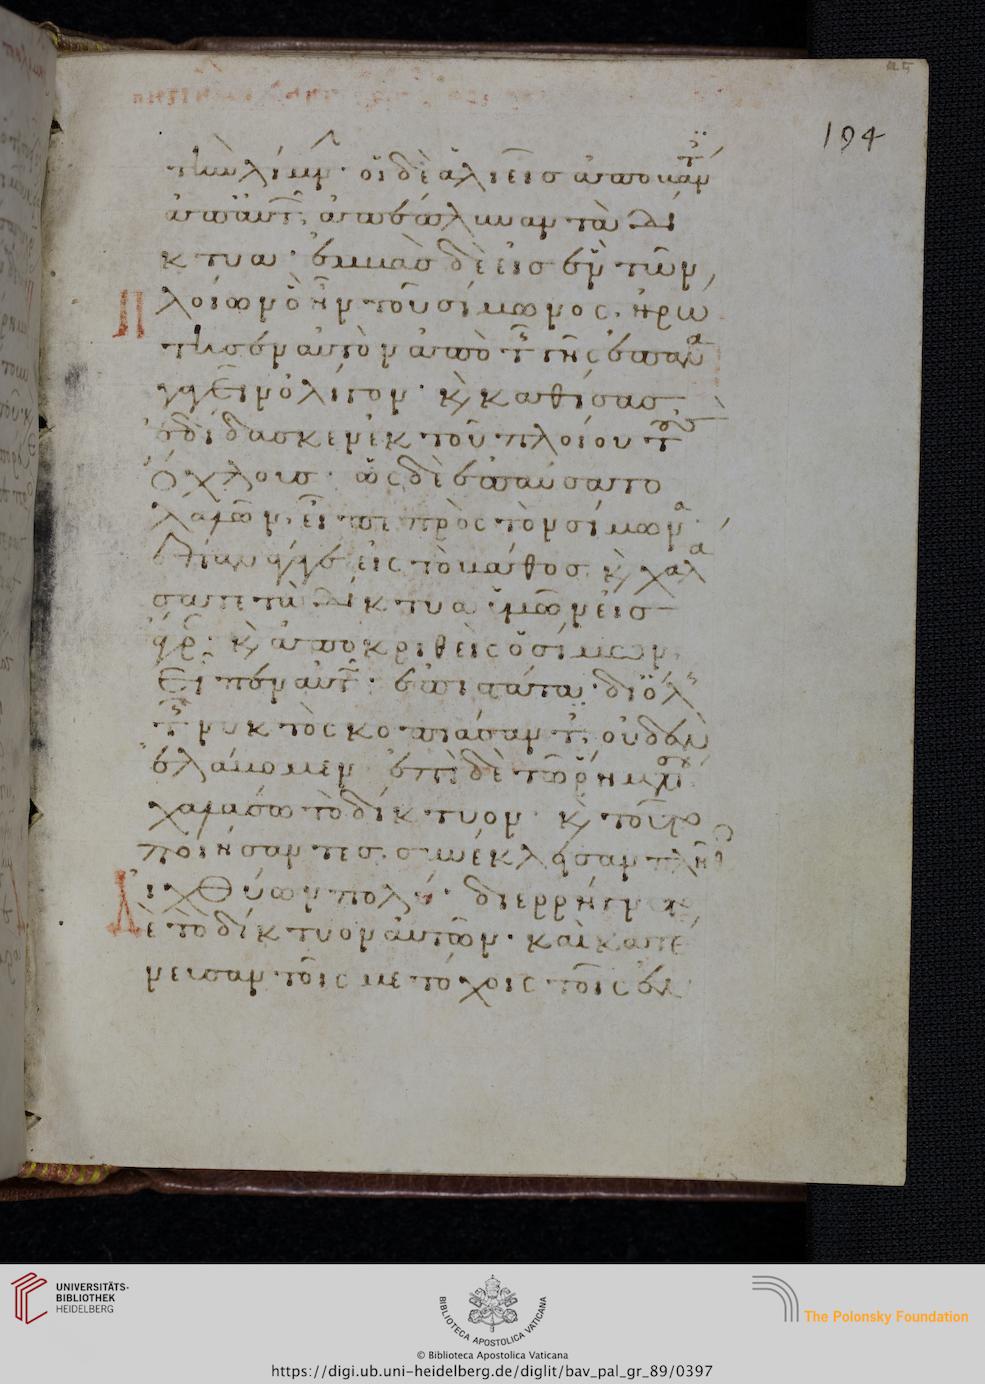 194
τὴν λίμν· οἱ δὲ ἁλιεῖς ἀποβάν
ἀπ' αὐτ, ἀπέπλυναν τὰ δί
κτυα· ἐμβὰς δὲ εἰς ἓν τῶν
πλοίων ὃ ἦν τοῦ σίμωνος, ἠρώ
τησεν αὐτὸν ἀπὸ τ γῆς ἐπανα
γαγεῖν ὀλίγον· κ καθίσας
ἐδίδασκεν ἐκ τοῦ πλοίου τοὺς
ὄχλους· ὡς δὲ ἐπαύσατο
λαλῶν, εἶπε πρὸς τὸν σίμωνα·
ἐπανάγαγε εἰς τὸ βάθος κ χαλά
σατε τὰ δίκτυα ὑμῶν εἰς
ἄγρ· κ ἀποκριθεὶς ὁ σίμων
εἶπεν αὐτ· ἐπιστάτα· δι' ὅλ
τ νυκτὸς κοπιάσαντ, οὐδὲν
ἐλάβομεν ἐπὶ δὲ τῶ ῥήματί σου
χαλάσω τὸ δίκτυον· κ τοῦτο
ποιήσαντες, συνέκλεισαν πλῆθο
ἰχθύων πολύ· διερρήγνυτο
δὲ τὸ δίκτυον αὐτῶν· καὶ κατέ
νευσαν τοῖς μετόχοις τοῖς ἐν
UNIVERSITÄTS-
BIBLIOTHEK
HEIDELBERG
BIBLIOTECA APOSTOLICA VATICANA
© Biblioteca Apostolica Vaticana
The Polonsky Foundation
https://digi.ub.uni-heidelberg.de/diglit/bav_pal_gr_89/0397